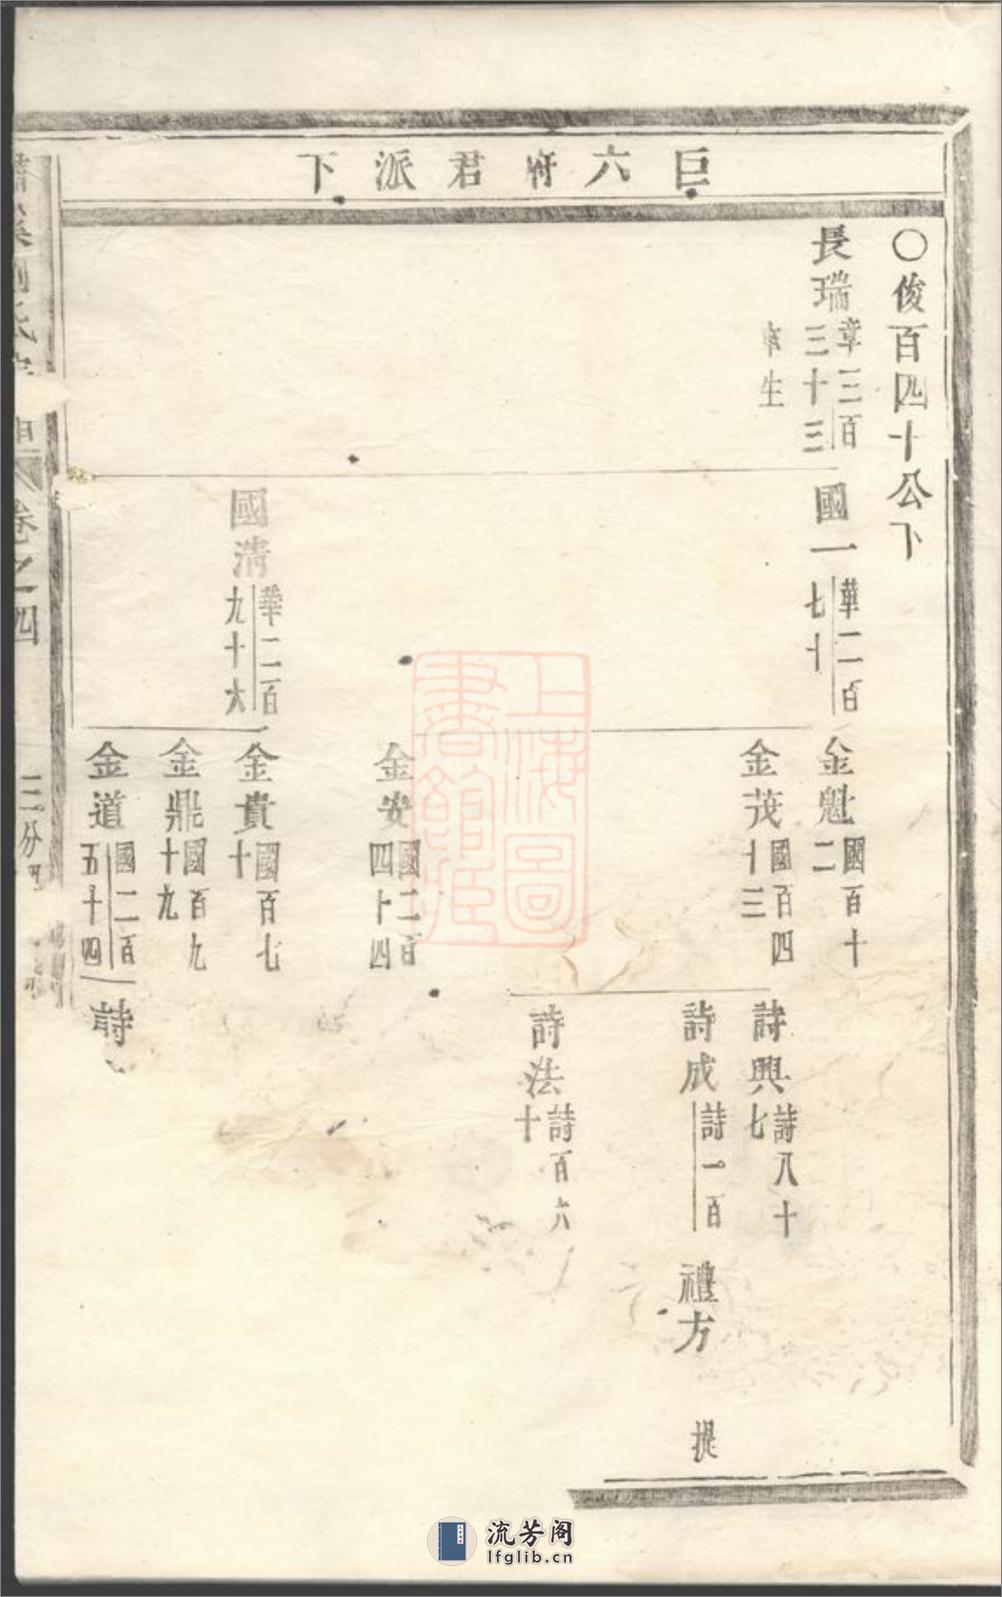 巨六府君派下
〇俊百四十公下
長瑞 章三百三十三
生
國一 華二百七十
金魁 國百十二
金茂 國百四十三
詩興 詩八十七
詩成 詩一百
禮方
提
詩法 詩百六十
金安 國二百四十四
國清 華二百九十六
金貴 國百七十
金鼎 國百九十九
金道 國二百五十四
詩
卷之四
上海圖書館藏
流芳阁
lfglib.cn